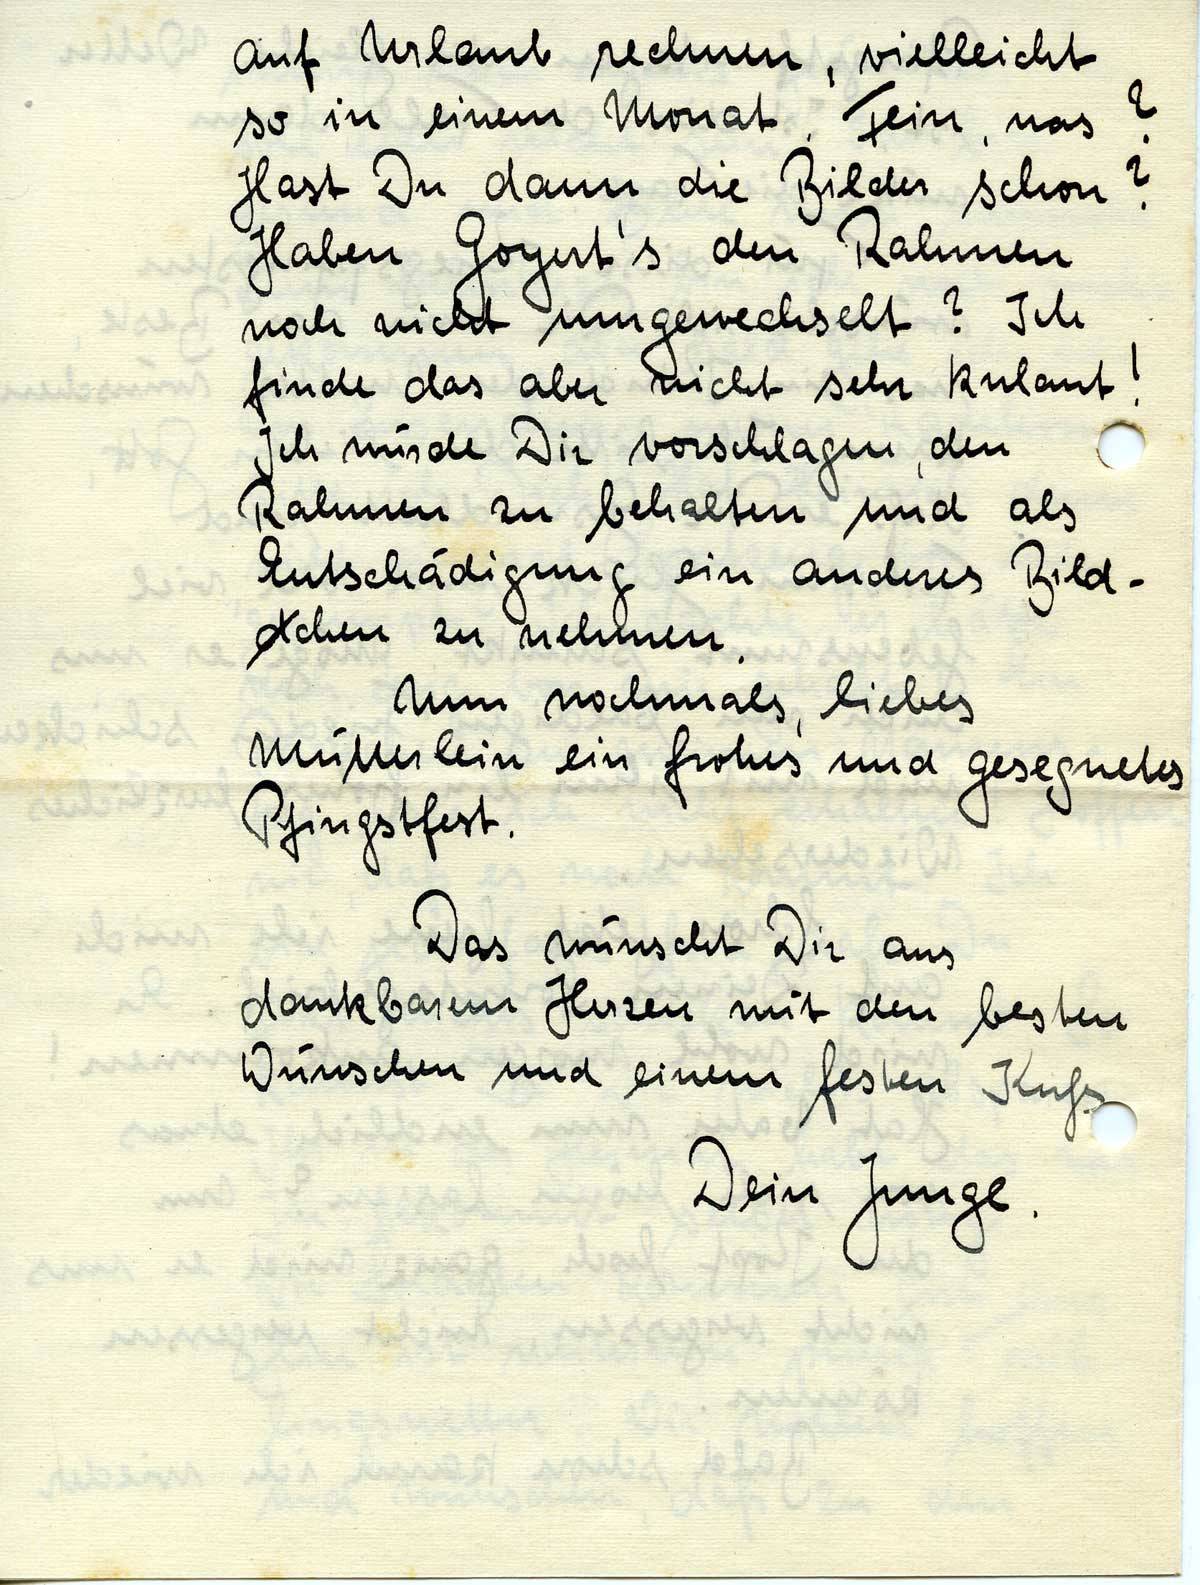 auf Urlaub rechnen, vielleicht
so in einem Monat. Fein, was?
Hast Du dann die Bilder schon?
Haben Goyert's den Rahmen
noch nicht umgewechselt? Ich
finde das aber nicht sehr kulant!
Ich würde Dir vorschlagen, den
Rahmen zu behalten und als
Entschädigung ein anderes Bild-
chen zu nehmen.
Nun nochmals, liebes
Mütterlein ein frohes und gesegnetes
Pfingstfest.
Das wünscht Dir aus
dankbarem Herzen mit den besten
Wünschen und einem festen Kuss
Dein Junge.